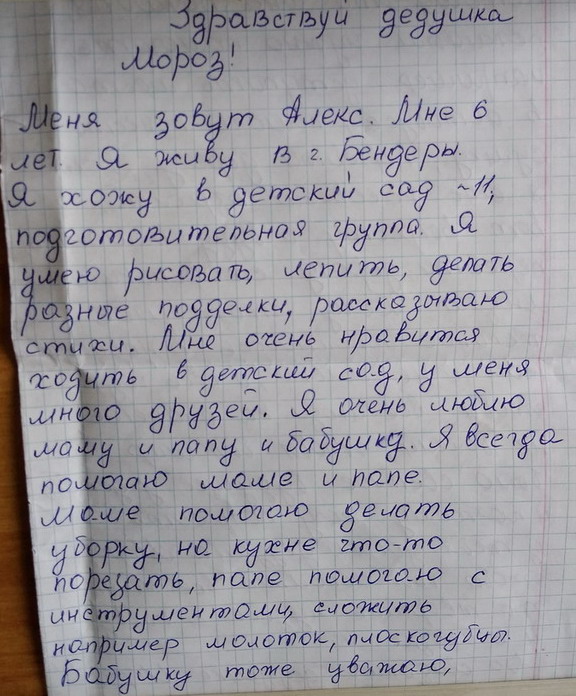 Здравствуй дедушка
Мороз!
Меня зовут Алекс. Мне 6
лет. Я живу в г. Бендеры.
Я хожу в детский сад ~11,
подготовительная группа. Я
умею рисовать, лепить, делать
разные подделки, рассказываю
стихи. Мне очень нравится
ходить в детский сад, у меня
много друзей. Я очень люблю
маму и папу и бабушку. Я всегда
помогаю маме и папе.
Маме помогаю делать
уборку, на кухне что-то
порезать, папе помогаю с
инструментами, сложить
например молоток, плоскогубцы.
Бабушку тоже уважаю,